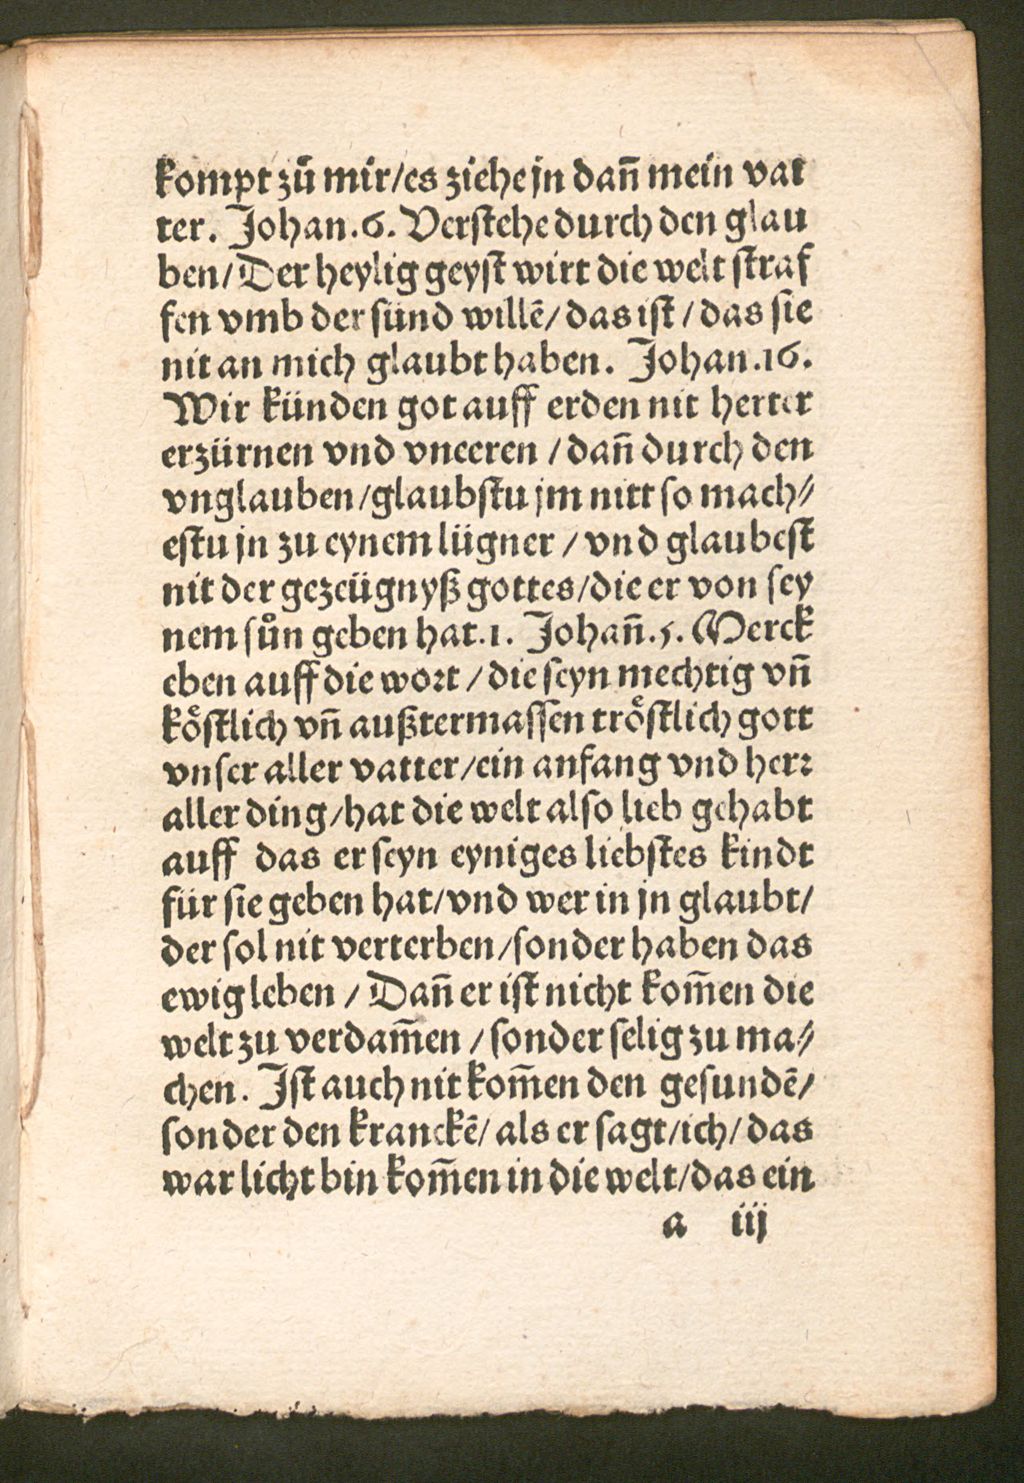 kompt zů mir/es ziehe jn dañ mein vat
ter. Johan.6. Verstehe durch den glau
ben/Der heylig geyst wirt die welt straf
fen vmb der sünd willē/das ist/das sie
nit an mich glaubt haben. Johan.16.
Wir künden got auff erden nit herter
erzürnen vnd vneeren/dañ durch den
vnglauben/glaubstu jm nitt so mach⸗
estu jn zu eynem lügner/vnd glaubest
nit der gezeügnyß gottes/die er von sey
nem sůn geben hat.1. Johañ.5. Merck
eben auff die wort/die seyn mechtig vñ
köstlich vñ außtermassen tröstlich gott
vnser aller vatter/ein anfang vnd herr
aller ding/hat die welt also lieb gehabt
auff das er seyn eyniges liebstes kindt
für sie geben hat/vnd wer in jn glaubt/
der sol nit verterben/sonder haben das
ewig leben/Dañ er ist nicht kom̄en die
welt zu verdam̄en/sonder selig zu ma⸗
chen. Ist auch nit kom̄en den gesundē/
sonder den kranckē/als er sagt/ich/das
war licht bin kom̄en in die welt/das ein
a iij